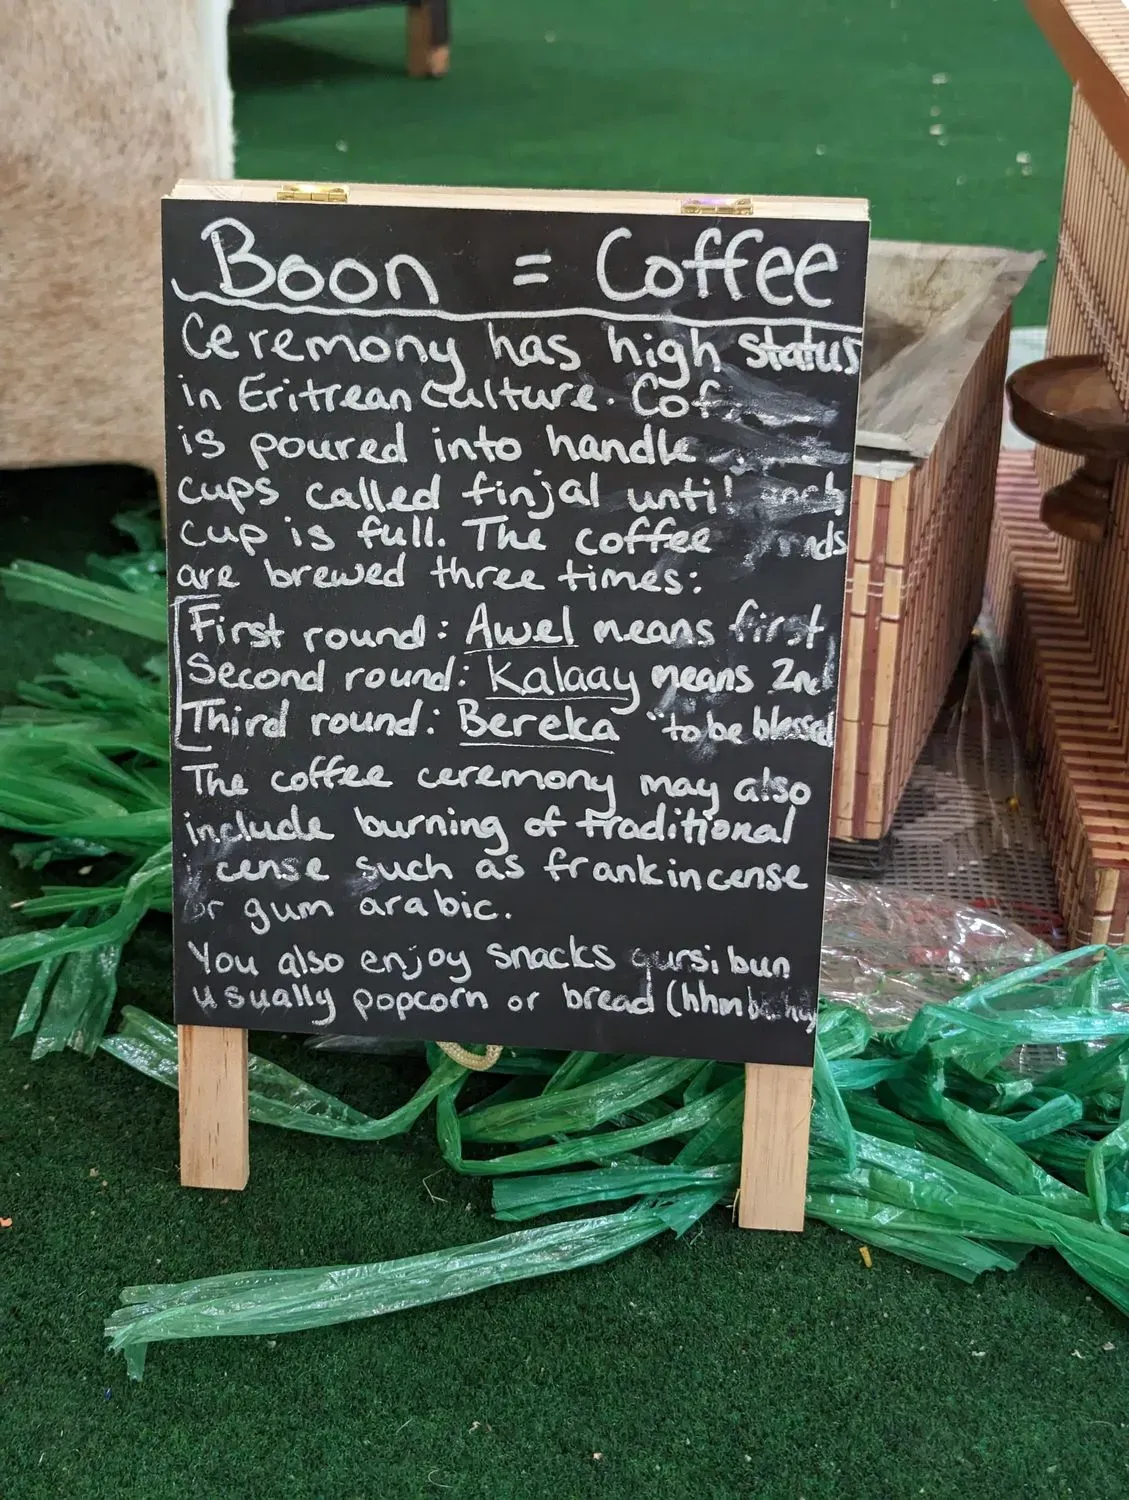 Boon = Coffee
Ceremony has high status
in Eritrean culture.
is poured into
cups called finjal until
cup is full. The coffee
are brewed three times:
First round: Awel means first
Second round: Kalaay means 2nd
Third round: Bereka "to be blessed
The coffee ceremony may also
include burning of traditional
such as frankincense
or gum arabic.
You also enjoy snacks qursi bun
usually popcorn or bread